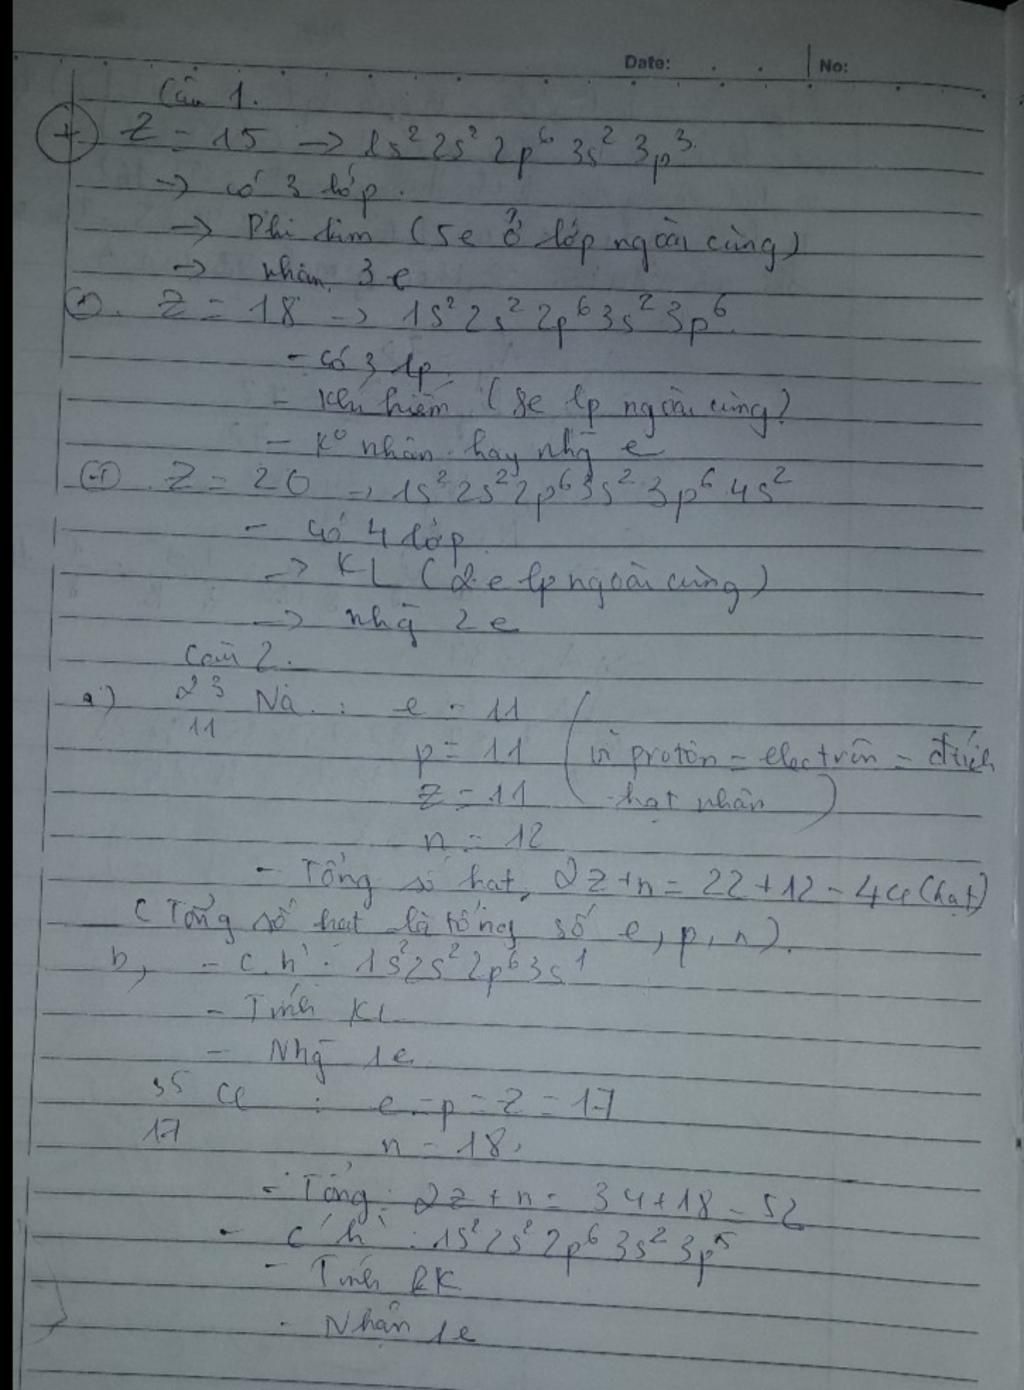 Date: . . No:
Câu 1.
+ Z = 15 → 1s² 2s² 2p⁶ 3s² 3p³
→ có 3 lớp.
→ Phi kim (5e ở lớp ngoài cùng)
→ nhận 3e
Z = 18 → 1s² 2s² 2p⁶ 3s² 3p⁶
- có 3 lp
- Khí hiếm (8e lp ngoài cùng)
- K⁰ nhận hay nhg e
Z = 20 → 1s² 2s² 2p⁶ 3s² 3p⁶ 4s²
- có 4 lớp
→ KL (2e lp ngoài cùng)
→ nhg 2e
Câu 2.
a) ²³₁₁ Na : e = 11
p = 11 (vì proton = electron = đtích
Z = 11 hạt nhân)
n = 12
- Tổng số hạt, 2Z+n = 22+12 = (hạt)
(Tổng số hạt là tổng số e, p, n).
b, - C.h : 1s² 2s² 2p⁶ 3s¹
- Tính KL
- Nhg 1e
³⁵₁₇ Cl : e = p = Z = 17
n = 18.
- Tổng: 2Z + n = 34+18 = 52
- C h : 1s² 2s² 2p⁶ 3s² 3p⁵
- Tính
- Nhận 1e